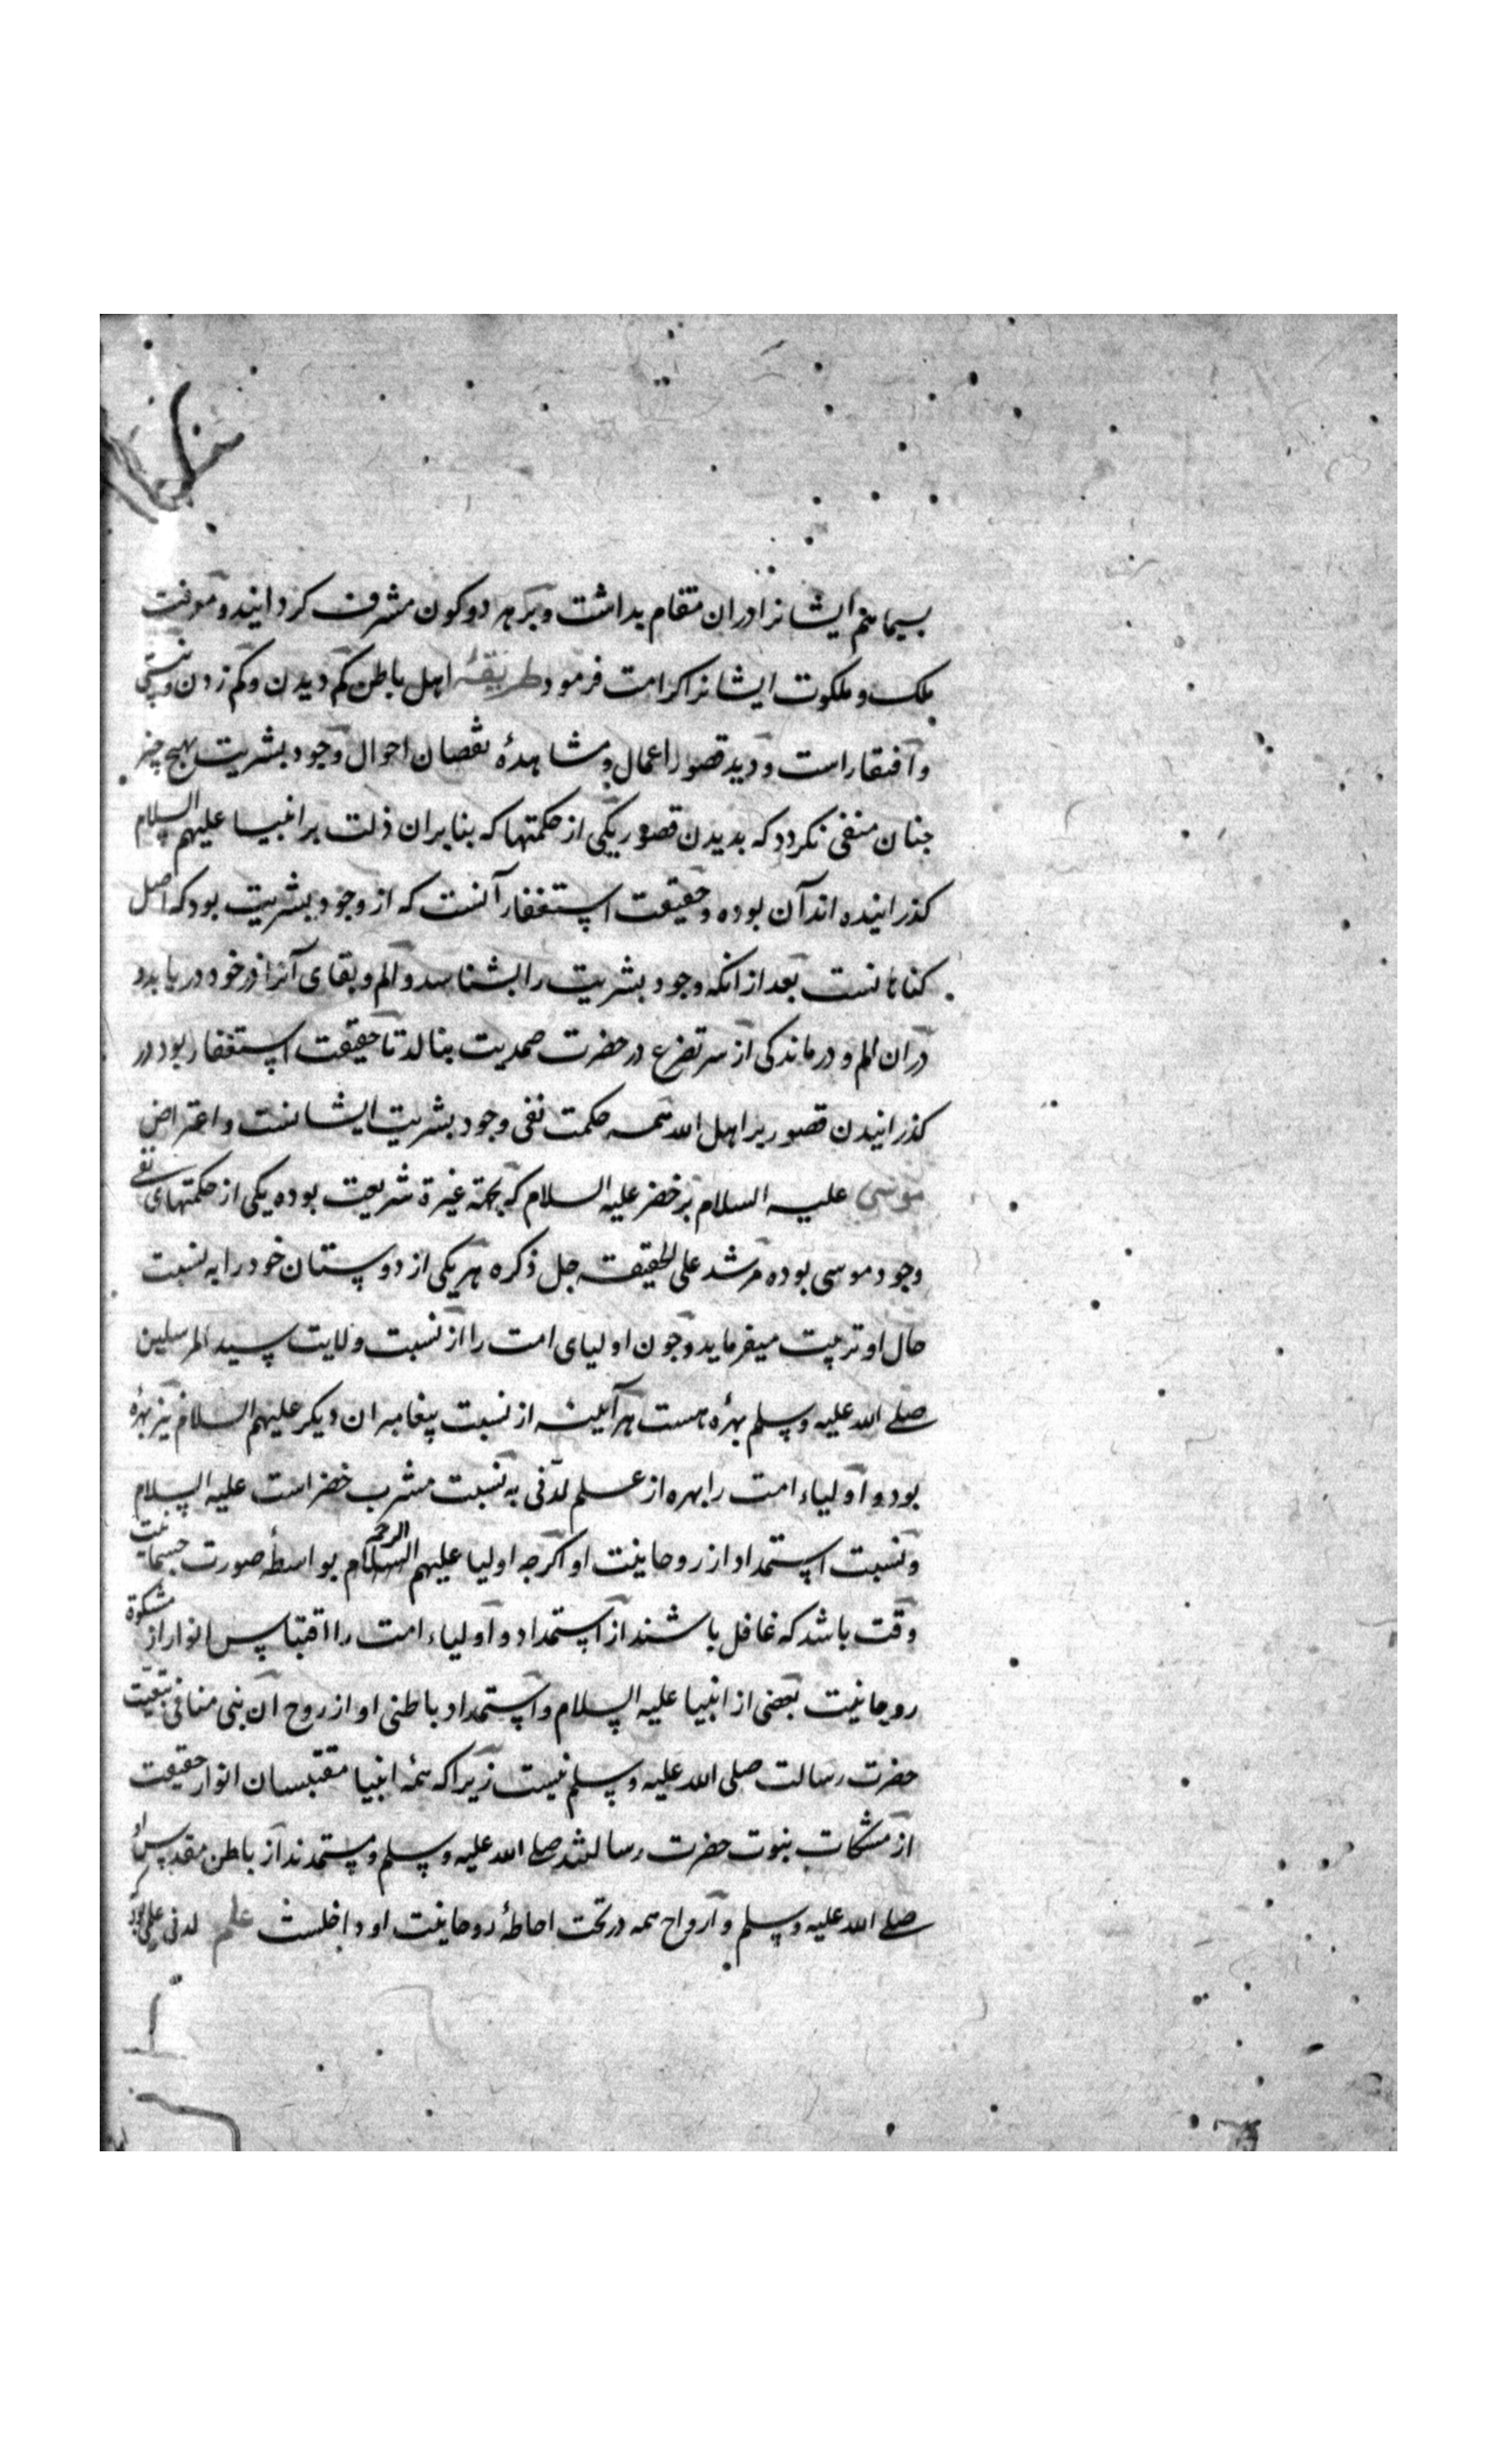 بسیماهم ایشانرا دران مقام بداشت و بر هر دو کون مشرف کردانید و معرفت
ملک و ملکوت ایشانرا کرامت فرمود طریقهٔ اهل باطن کم دیدن و کم زدن و نیستی
و افتقار است و دید قصور اعمال و مشاهدهٔ نقصان احوال وجود بشریت بهیچ چیز
جنان منفی نکردد که بدیدن قصور یکی از حکمتها که بنابران ذلت بر انبیا علیهم السلام
کذرانیده اند آن بوده و حقیقت استغفار آنست که از وجود بشریت بود که اصل
کناهانست بعد ازانکه وجود بشریت را بشناسد و الم و بقای آنرا در خود دریابد و
دران الم و درماندکی از سر تضرع در حضرت صمدیت بنالد تا حقیقت استغفار بود در
کذرانیدن قصور بر اهل الله همه حکمت نفی وجود بشریت ایشانست و اعتراض
موسی علیه السلام بر خضر علیه السلام که بجهة غیرة شریعت بوده یکی از حکمتهای نفی
وجود موسی بوده مرشد علی الحقیقه جل ذکره هر یکی از دوستان خود را به نسبت
حال او تربیت میفرماید و جون اولیای امت را از نسبت ولایت سید المرسلین
صلی الله علیه وسلم بهرهٔ هست هر آینه از نسبت پیغامبران دیکر علیهم السلام نیز بهرهٔ
بود و اولیاء امت را بهره از علم لدنی به نسبت مشرب خضر است علیه السلام
و نسبت استمداد از روحانیت او اکرجه اولیا علیهم السلام الرحمه بواسطهٔ صورت جسمانیت
وقت باشد که غافل باشند از استمداد و اولیاء امت را اقتباس انوار از مشکوة
روحانیت بعضی از انبیا علیه السلام و استمداد باطنی او از روح آن نبی منافی تبعیت
حضرت رسالت صلی الله علیه وسلم نیست زیرا که همهٔ انبیا مقتبسان انوار حقیقت
از مشکات نبوت حضرت رسالتند صلی الله علیه وسلم و مستمدند از باطن مقدس او
صلی الله علیه وسلم و ارواح همه در تحت احاطهٔ روحانیت او داخلست علم لدنی علمی بود